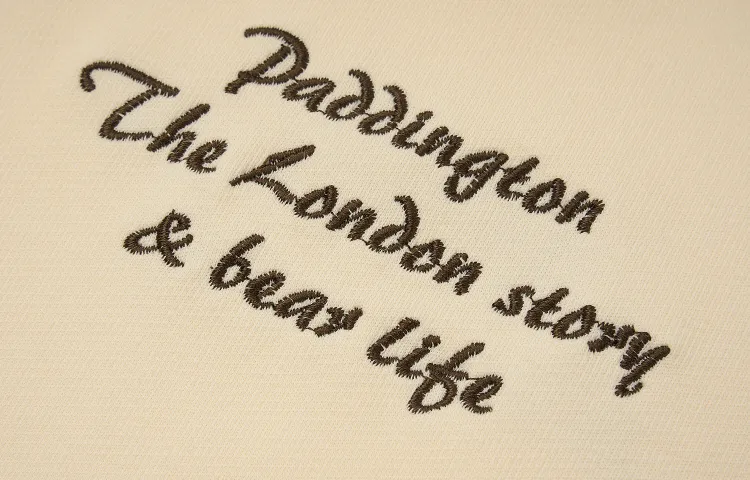 Paddington
The London story
& bear life